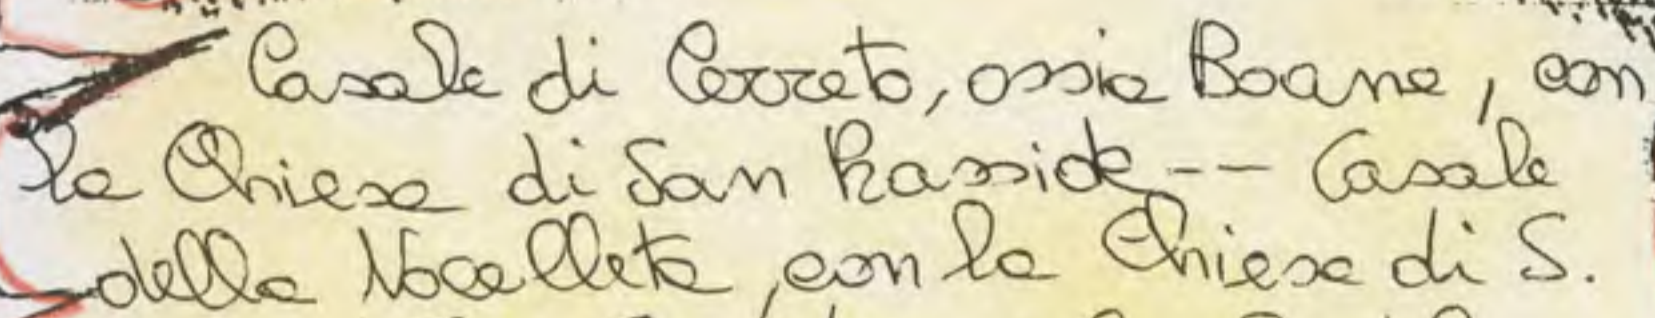 Casale di Cerreto, ossia Boana, con
la Chiesa di San Rasside -- Casale
della Nocelleta, con la Chiesa di S.